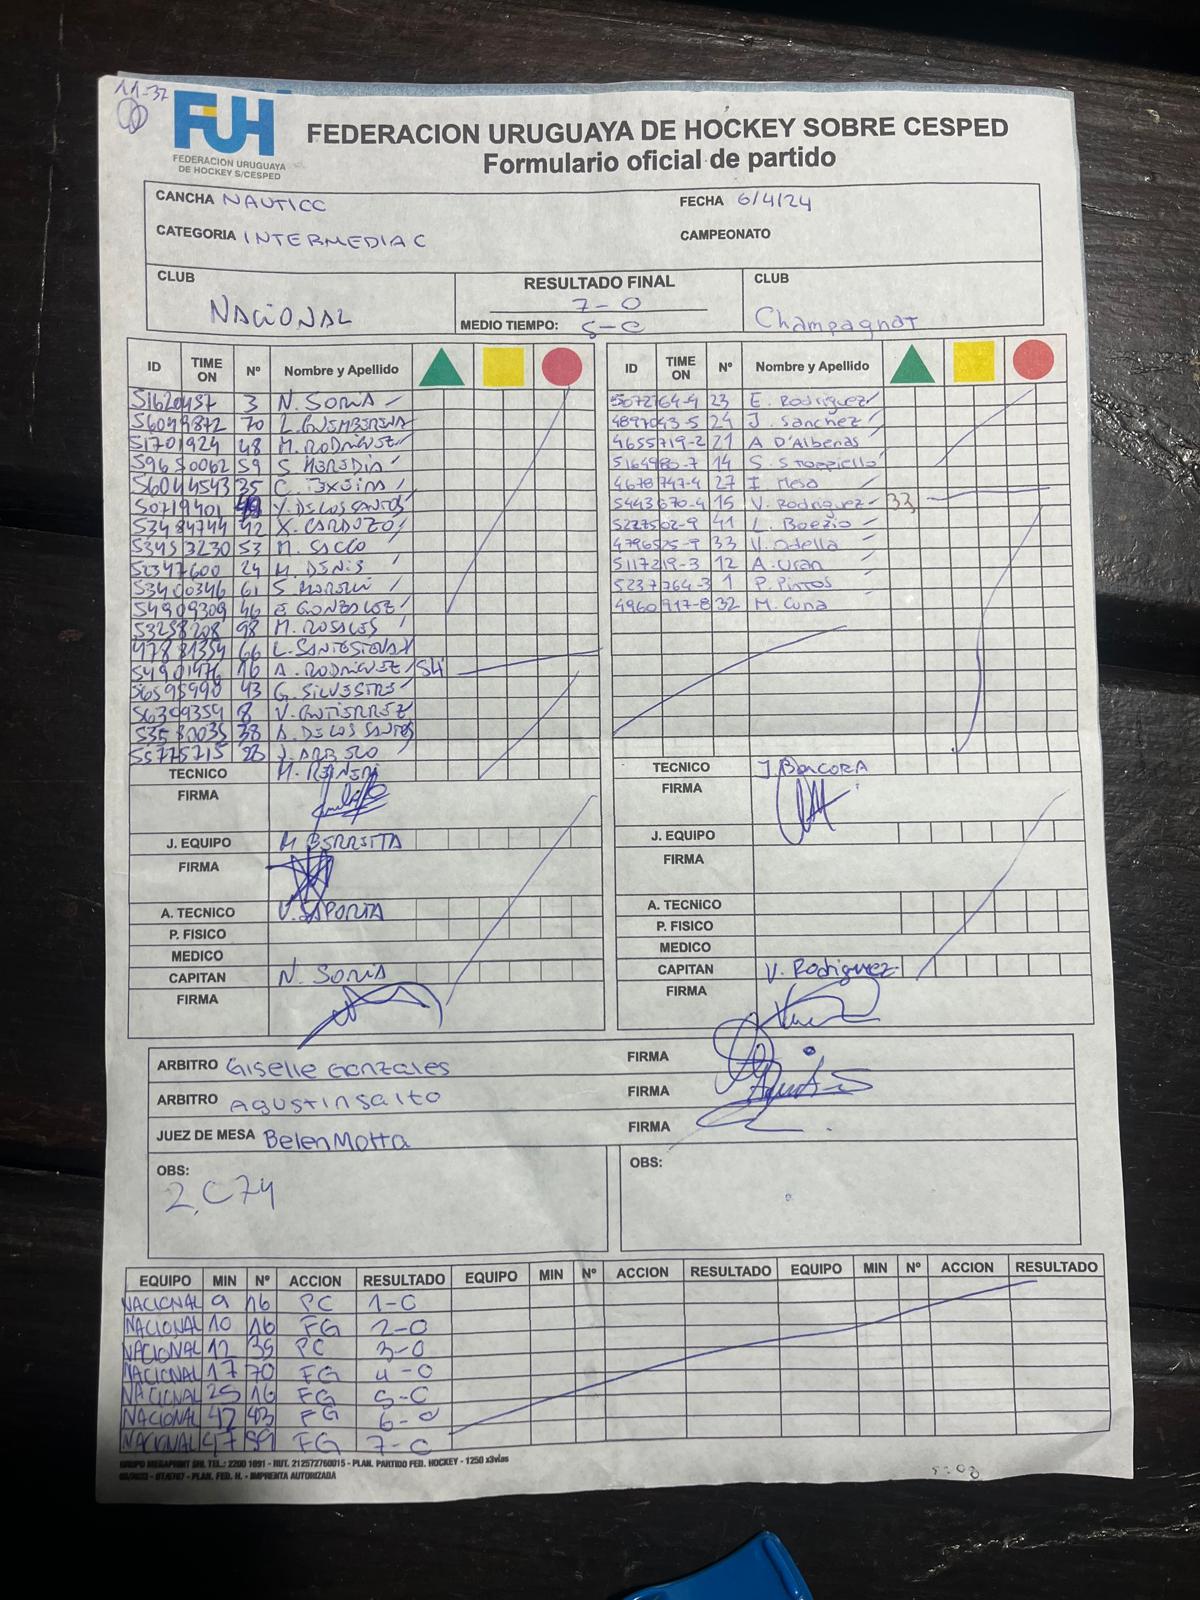 11-37
FUH
FEDERACION URUGUAYA
DE HOCKEY S/CESPED
FEDERACION URUGUAYA DE HOCKEY SOBRE CESPED
Formulario oficial de partido
CANCHA NAUTICO FECHA 6/4/24
CATEGORIA INTERMEDIA C CAMPEONATO
CLUB RESULTADO FINAL CLUB
NACIONAL 7-0 Champagnat
MEDIO TIEMPO: 5-0
ID TIME ON Nº Nombre y Apellido ID TIME ON Nº Nombre y Apellido
3 N. SORIA 23 E. Rodriguez
70 24 J. Sanchez
51701924 48 M. RODRIGUEZ 4655719-2 21 A D'Albenas
59650062 59 S. HEREDIA 14
56044543 35 C. TEXEIRA 4678747-4 27 I. Mesa
50719401 Y. DE LOS SANTOS 5443670-4 15 V. Rodriguez 33
53484744 42 X. CARDOZO 5227502-9 41 L. Boezio
53453230 53 M. SACCO 4796525-9 33 V. Odella
52347600 24 M. DENIS 5117219-3 12 A. Uran
53400346 61 5237764-3 1 P. Pintos
54909309 46 E. GONZALEZ 4960917-8 32 M. Cuna
53258208 98 M. ROSALES
47881354 66 L. SANTESTEVAN
54901476 16 A. RODRIGUEZ 54'
56595990 43 G. SILVESTRE
56309359 8 V. GUTIERREZ
53580035 38 A. DE LOS SANTOS
55775715 28
TECNICO TECNICO
FIRMA FIRMA
J. EQUIPO M BERRETTA J. EQUIPO
FIRMA FIRMA
A. TECNICO V. SAPORTA A. TECNICO
P. FISICO P. FISICO
MEDICO MEDICO
CAPITAN N. SORIA CAPITAN V. Rodriguez
FIRMA FIRMA
ARBITRO Giselle Gonzales FIRMA
ARBITRO Agustin Salto FIRMA
JUEZ DE MESA Belen Motta FIRMA
OBS: OBS:
2.C74
EQUIPO MIN Nº ACCION RESULTADO EQUIPO MIN Nº ACCION RESULTADO EQUIPO MIN Nº ACCION RESULTADO
NACIONAL 9 16 PC 1-0
NACIONAL 10 16 FG 2-0
NACIONAL 12 35 PC 3-0
NACIONAL 17 70 FG 4-0
NACIONAL 25 16 FG 5-0
NACIONAL 42 43 FG 6-0
NACIONAL 47 59 FG 7-0
GRUPO MEGAPRINT SRL TEL.: 2200 1091 - RUT. 212572760015 - PLAN. PARTIDO FED. HOCKEY - 1250 x3vías
PLAN. FED. H. - IMPRENTA AUTORIZADA